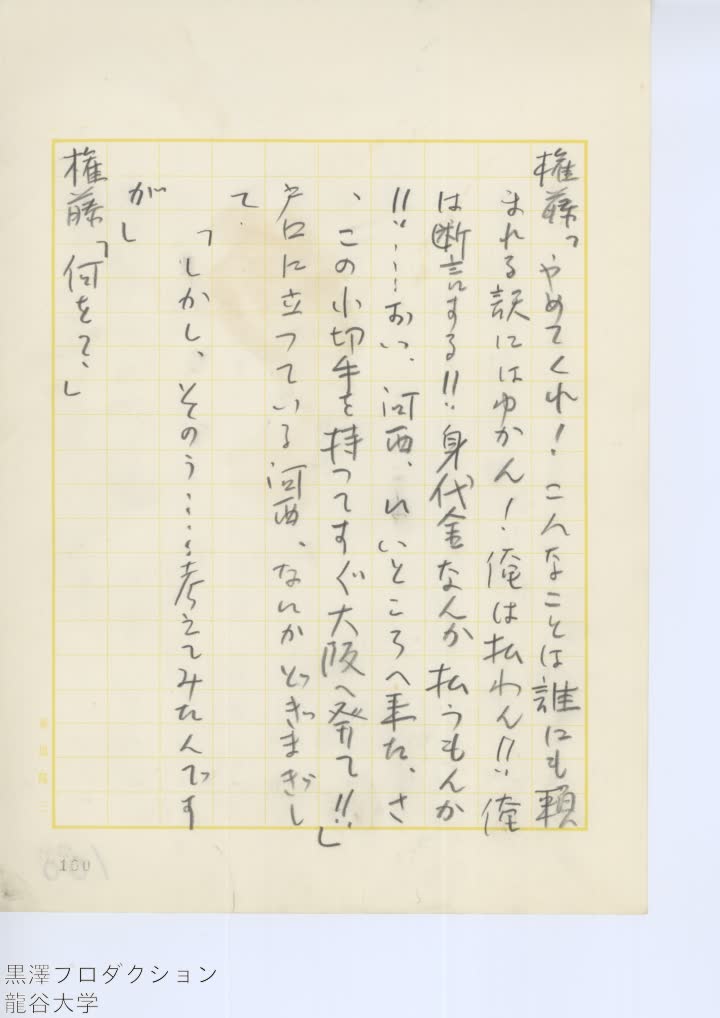 権藤「やめてくれ！こんなことは誰にも頼
まれる訳にはゆかん！俺は払わん!!俺
は断言する!!身代金なんか払うもんか
!!……おい、河西、いいところへ来た、さ
、この小切手を持つてすぐ大阪へ発て!!」
戸口に立つている河西、なにかどぎまぎし
て、
「しかし、そのう……考えてみたんです
が」
権藤「何を？」
160
黒澤プロダクション
龍谷大学